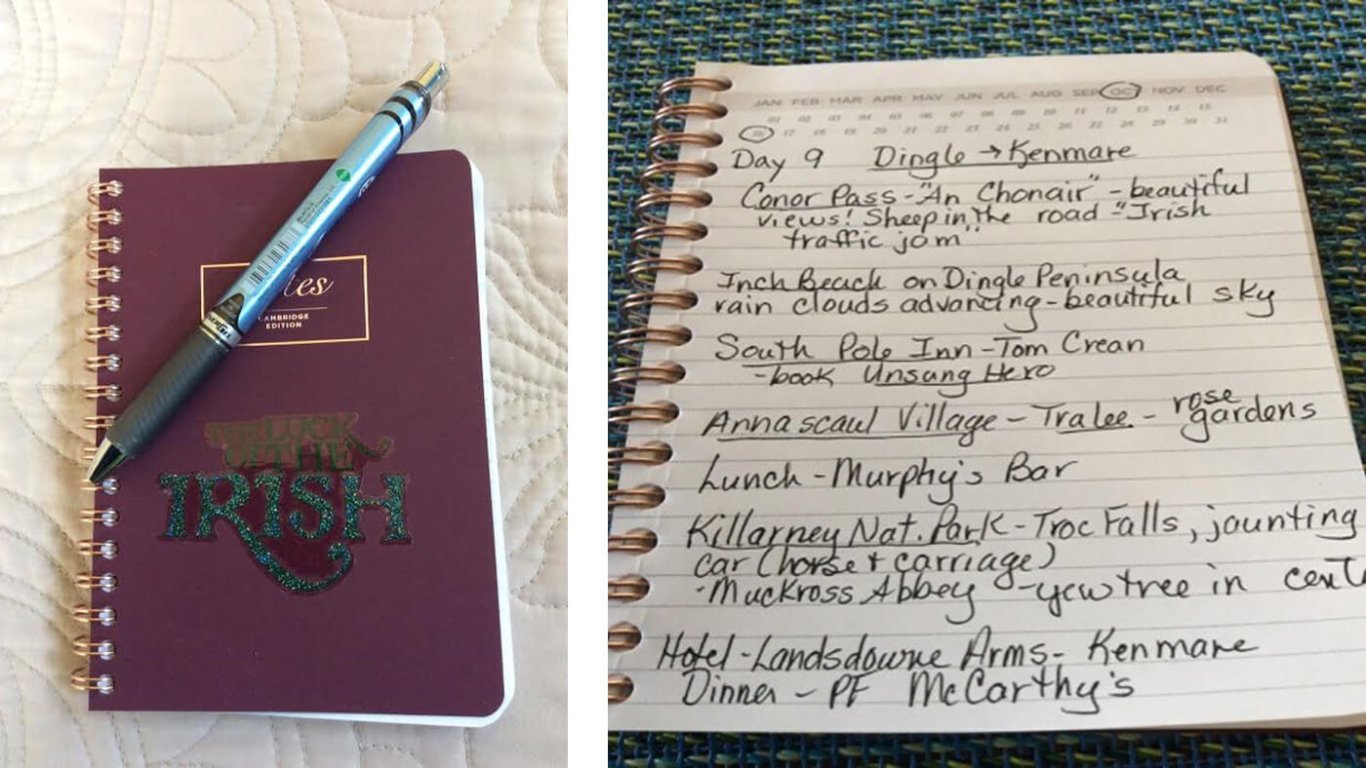 Notes
CAMBRIDGE
EDITION
LUCK
OF THE
IRISH
JAN FEB MAR APR MAY JUN JUL AUG SEP OCT NOV DEC
01 02 03 04 05 06 07 08 09 10 11 12 13 14 15
16 17 18 19 20 21 22 23 24 25 26 27 28 29 30 31
Day 9 Dingle → Kenmare
Conor Pass - "An Chonair" - beautiful
views! Sheep in the road - "Irish
traffic jam"
Inch Beach on Dingle Peninsula
rain clouds advancing - beautiful sky
South Pole Inn - Tom Crean
- book Unsung Hero
Annascaul Village - Tralee - rose
gardens
Lunch - Murphy's Bar
Killarney Nat. Park - Troc Falls, jaunting
car (horse + carriage)
- Muckross Abbey - yew tree in
Hotel - Landsdowne Arms - Kenmare
Dinner - PF McCarthy's